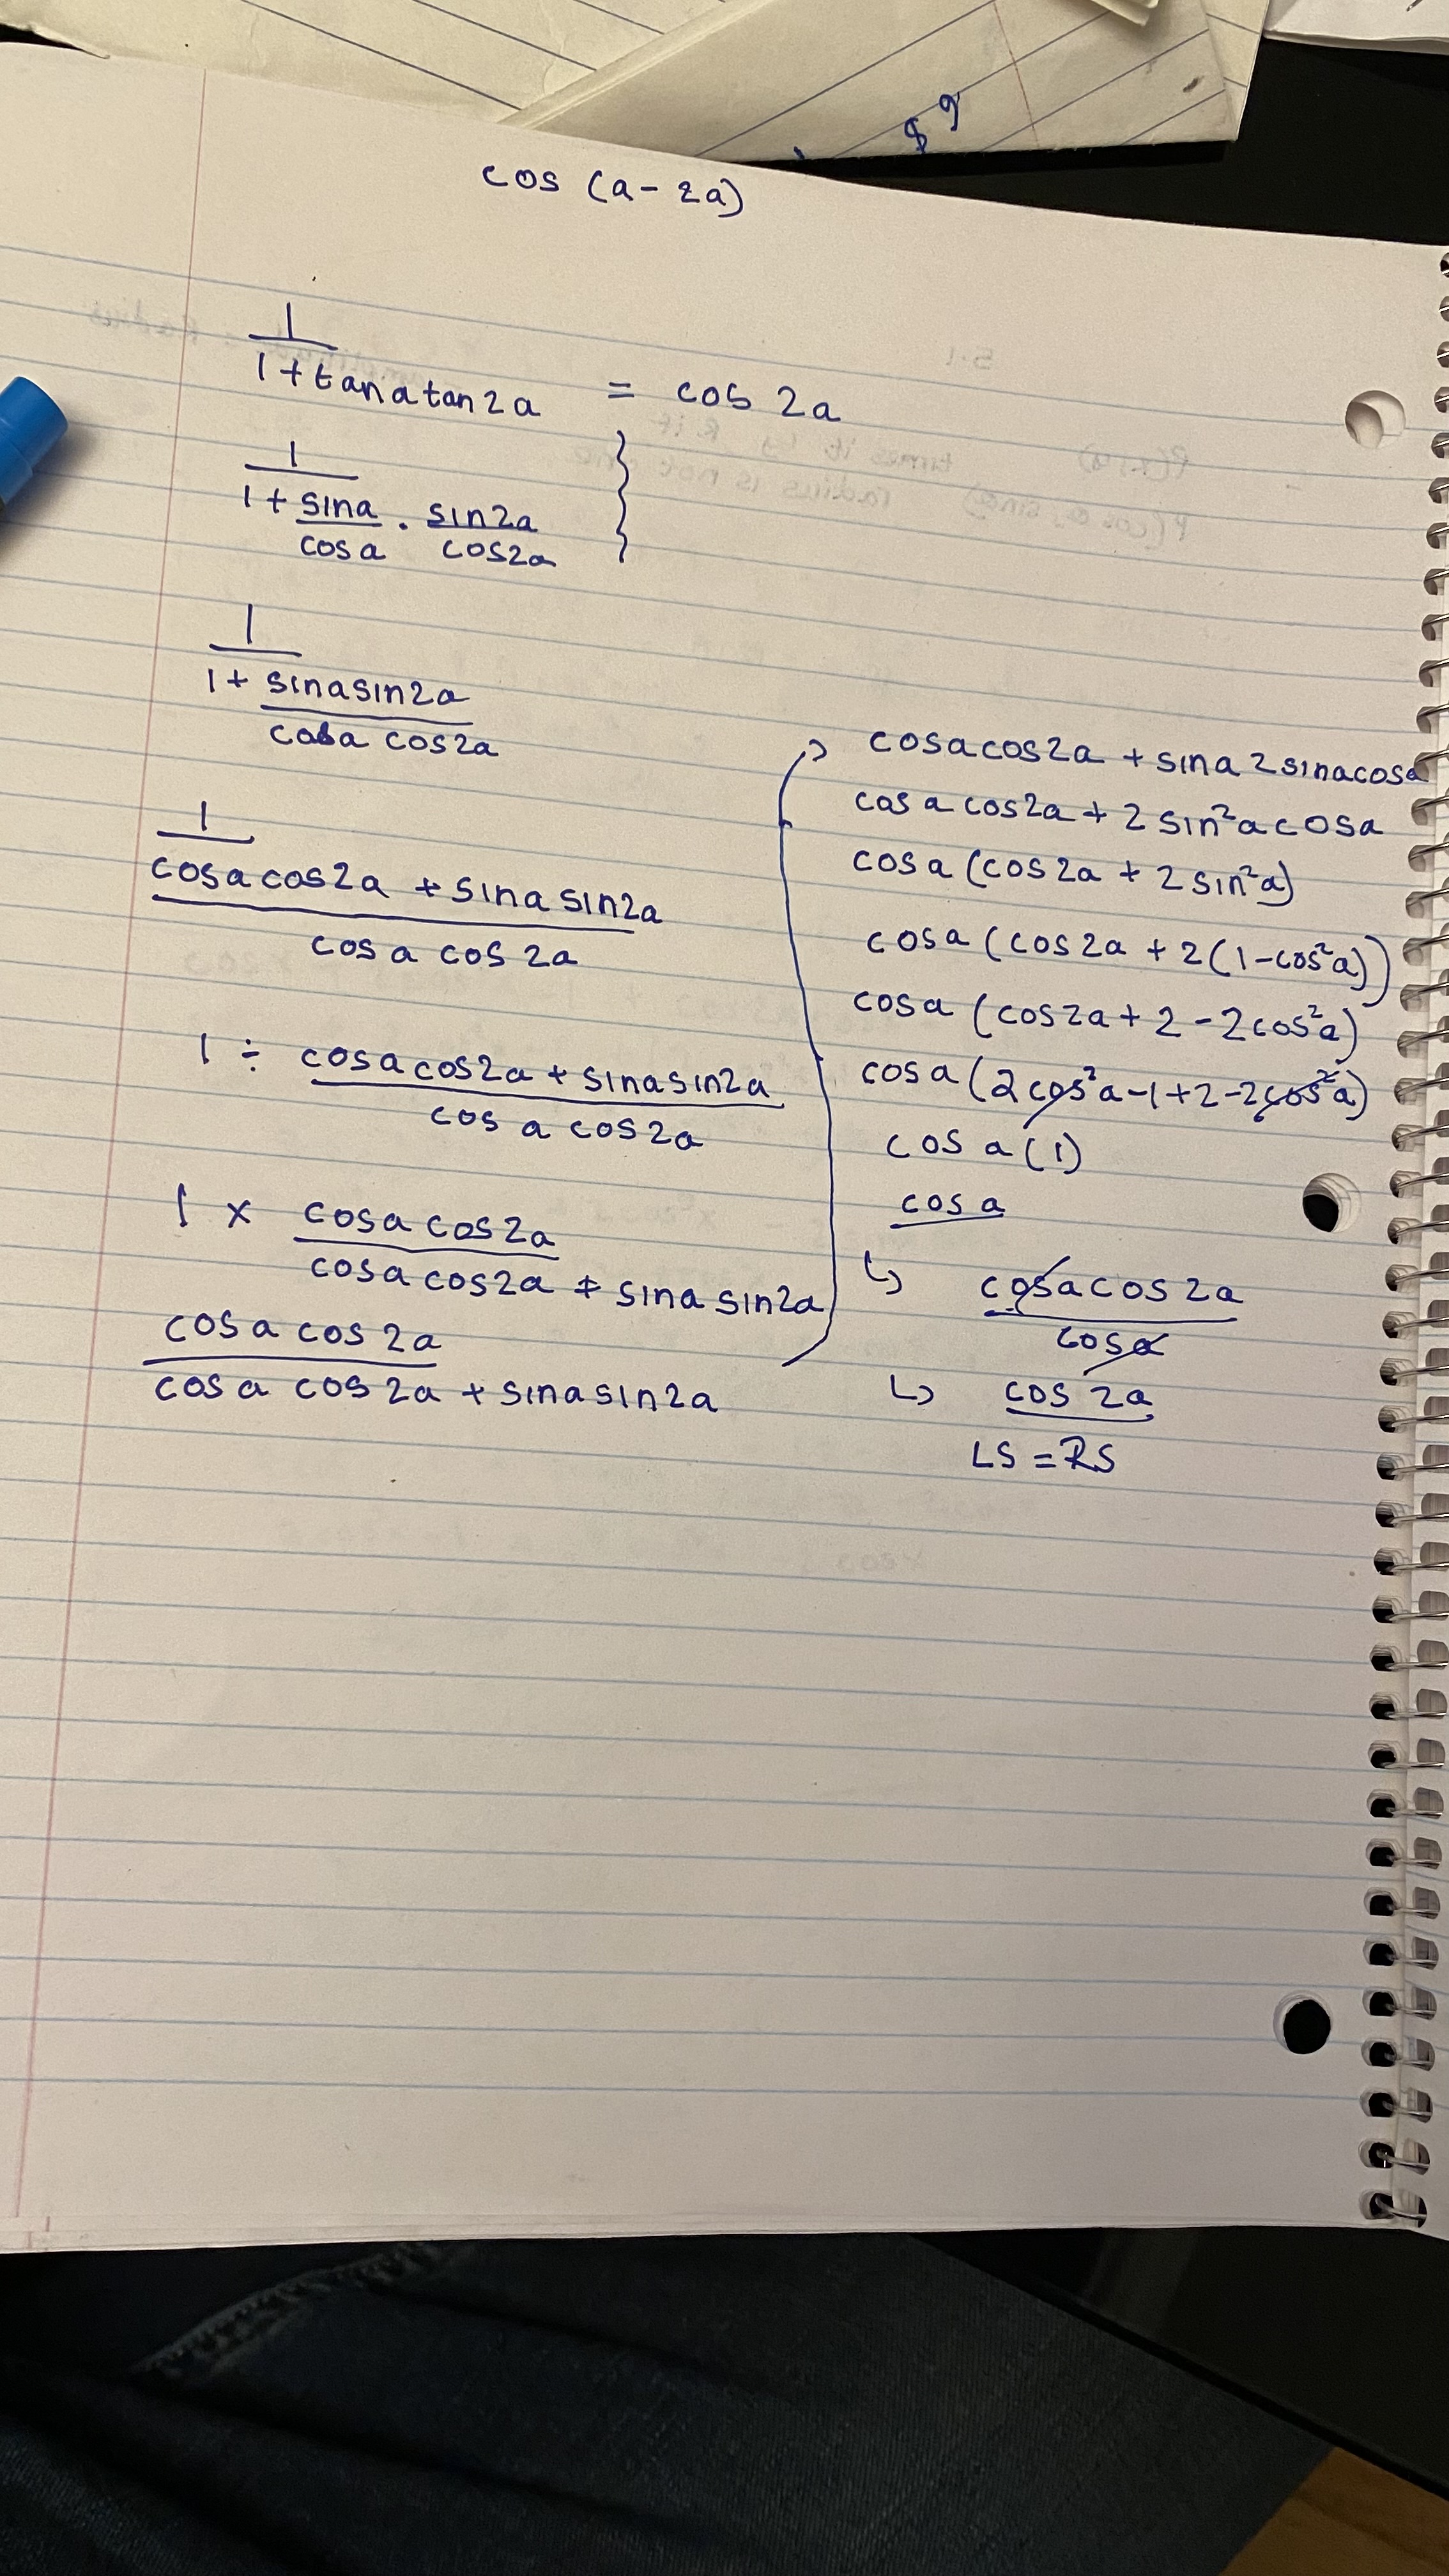 $ 9
cos (a - 2a)
1
1 + tan a tan 2a = cos 2a
1
1 + sin a . sin 2a
cos a cos 2a
1
1 + sin a sin 2a
cos a cos 2a
1
cos a cos 2a + sin a sin 2a
cos a cos 2a
1 ÷ cos a cos 2a + sin a sin 2a
cos a cos 2a
1 x cos a cos 2a
cos a cos 2a + sin a sin 2a
cos a cos 2a
cos a cos 2a + sin a sin 2a
cos a cos 2a + sin a 2 sin a cos a
cos a cos 2a + 2 sin²a cos a
cos a (cos 2a + 2 sin²a)
cos a (cos 2a + 2(1 - cos²a))
cos a (cos 2a + 2 - 2cos²a)
cos a (2cos²a - 1 + 2 - 2cos²a)
cos a (1)
cos a
↳ cos a cos 2a
cos a
↳ cos 2a
LS = RS